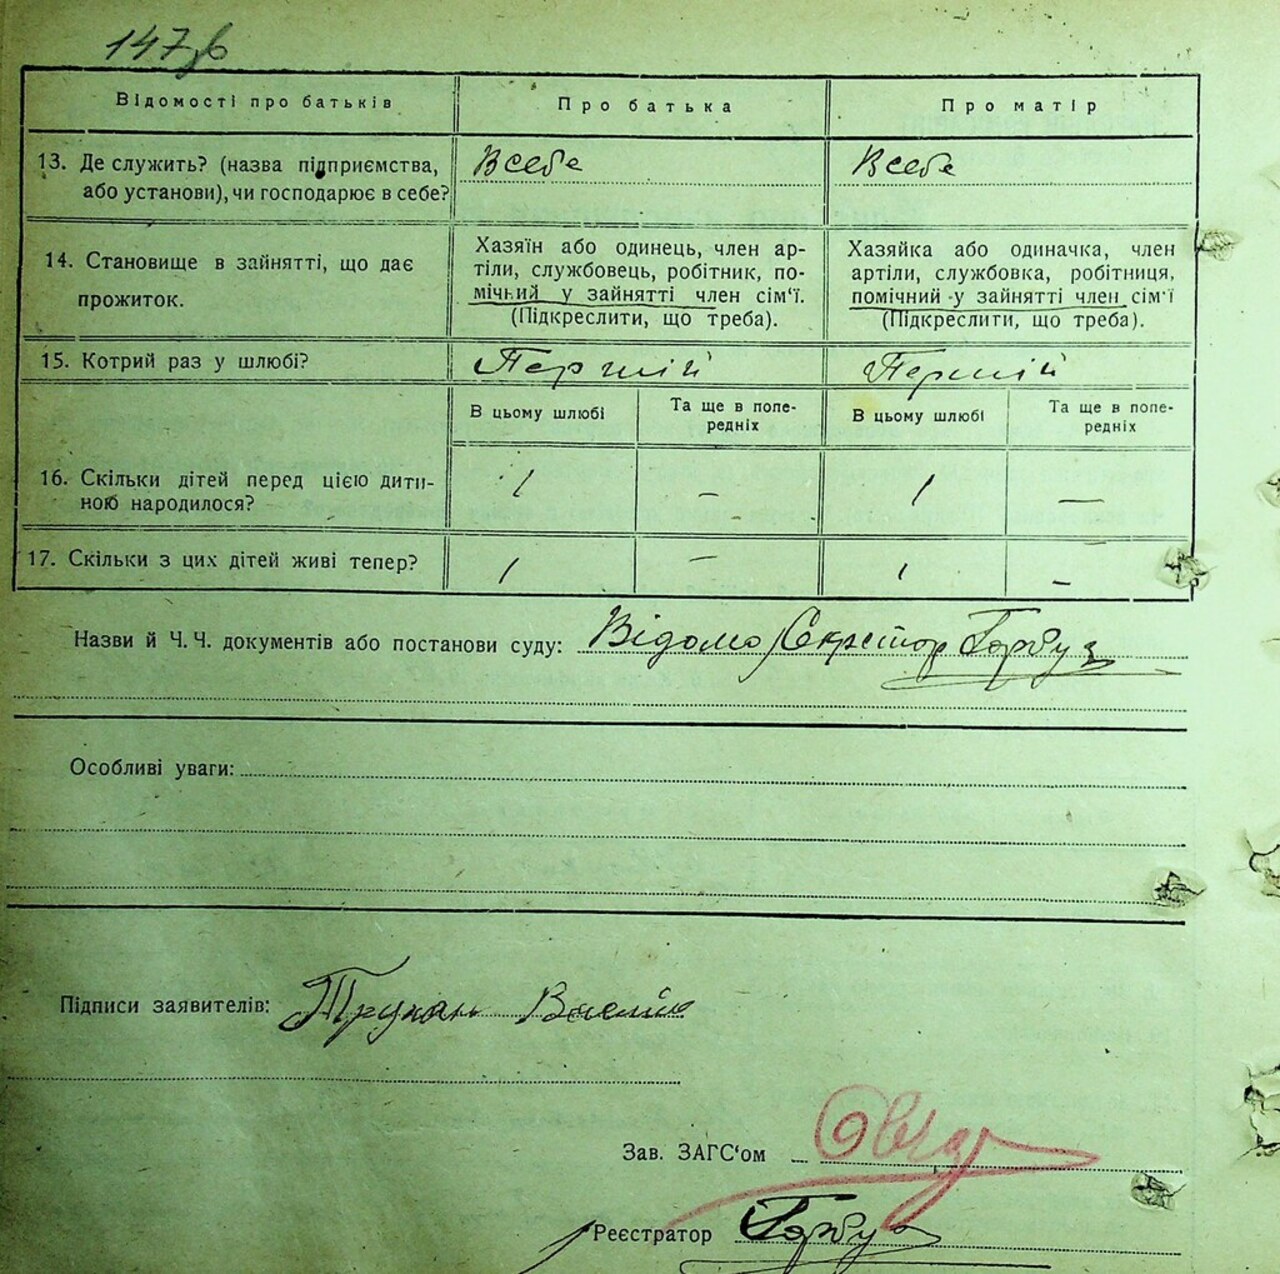 147зв
Відомості про батьків Про батька Про матір
13. Де служить? (назва підприємства, або установи), чи господарює в себе? Всебе Всебе
14. Становище в зайнятті, що дає прожиток.
Хазяїн або одинець, член ар-
тіли, службовець, робітник, по-
мічний у зайнятті член сім‘ї.
(Підкреслити, що треба).
Хазяйка або одиначка, член
артіли, службовка, робітниця,
помічний у зайнятті член сім‘ї
(Підкреслити, що треба).
15. Котрий раз у шлюбі? Первший Перший
В цьому шлюбі Та ще в попе-редніх В цьому шлюбі Та ще в попе-редніх
16. Скільки дітей перед цією дити-
ною народилося? 1 — 1 —
17. Скільки з цих дітей живі тепер? 1 — 1 —
Назви й Ч. Ч. документів або постанови суду: Відомо Секретор Горбуз
Особливі уваги:
Підписи заявителів: Трухан Василь
Зав. ЗАГС‘ом
Реєстратор Горбуз